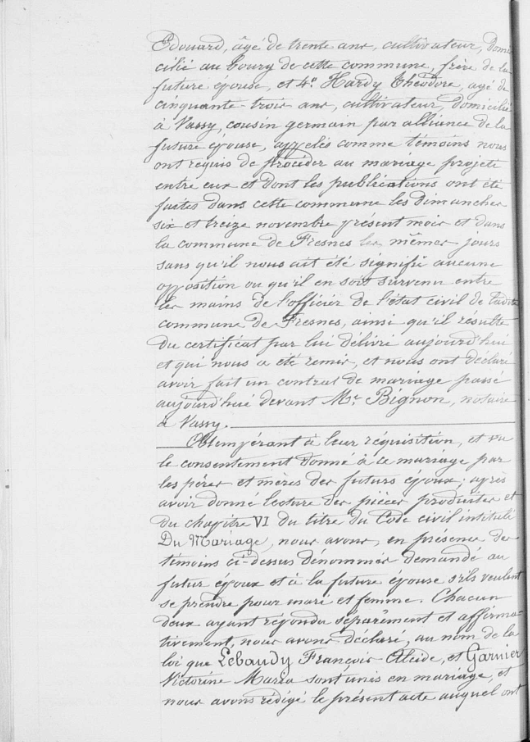 Edouard, âgé de trente ans, cultivateur, domi
cilié au bourg de cette commune, frère de la
future épouse, et 4° Hardy Théodore, âgé de
cinquante-trois ans, cultivateur, domicilié
à Vassy, cousin germain par alliance de la
future épouse, appelés comme témoins nous
ont requis de procéder au mariage projeté
entre eux et dont les publications ont été
faites dans cette commune les Dimanches
six et treize novembre présent mois et dans
la commune de Fresnes les mêmes jours
sans qu'il nous ait été signifié aucune
opposition ou qu'il en soit survenu entre
les mains de l'officier de l'état civil de ladite
commune de Fresnes, ainsi qu'il résulte
du certificat par lui délivré aujourd'hui
et qui nous a été remis, et nous ont déclaré
avoir fait un contrat de mariage passé
aujourd'hui devant Me Bignon, notaire
à Vassy.
Obtempérant à leur réquisition, et vu
le consentement donné à ce mariage par
les pères et mères des futurs époux; après
avoir donné lecture des pièces produites et
du chapitre VI du titre du Code civil intitulé
Du Mariage, nous avons, en présence des
témoins ci-dessus dénommés demandé au
futur époux et à la future épouse s'ils veulent
se prendre pour mari et femme. Chacun
deux ayant répondu séparément et affirma-
tivement, nous avons déclaré, au nom de la
loi que Lebaudy François-Alcide, et Garnier
Victorine Maria sont unis en mariage, et
nous avons rédigé le présent acte auquel ont